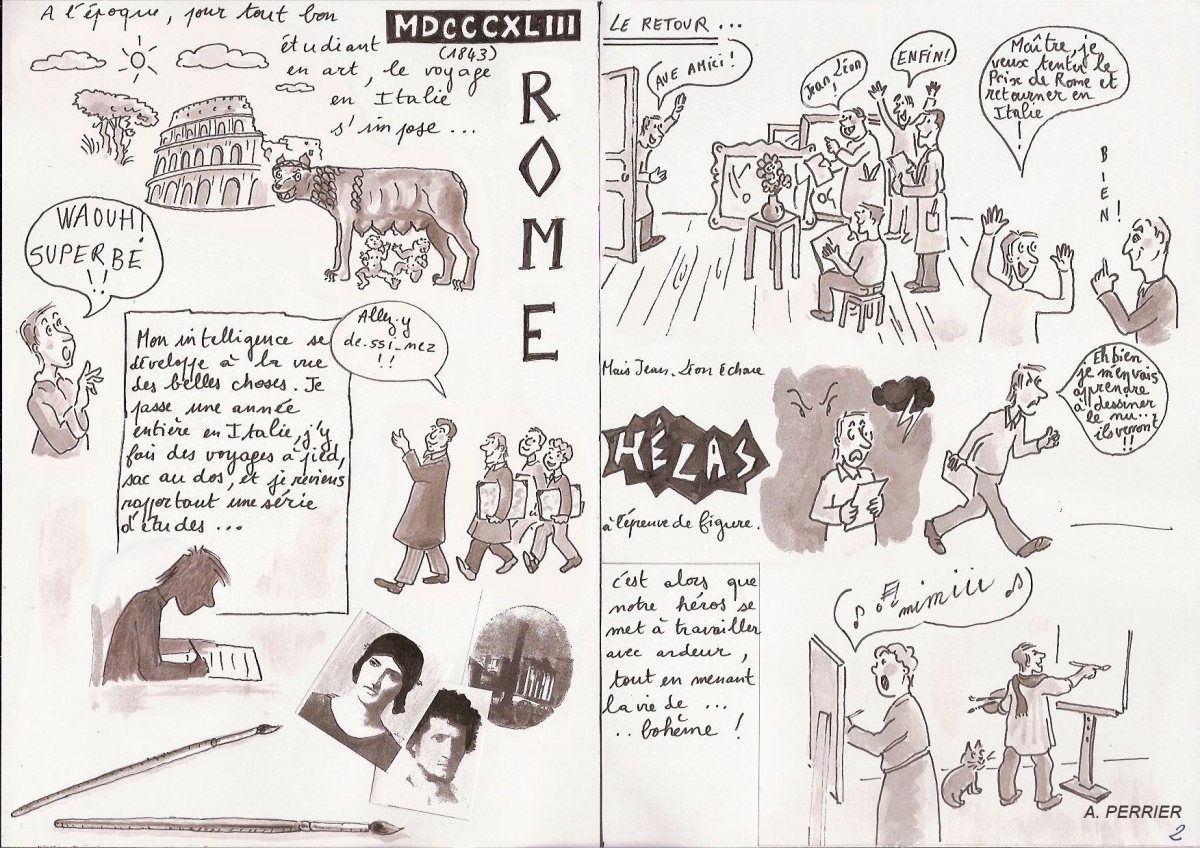 A l'époque, pour tout bon
étudiant
en art, le voyage
en Italie
s'impose...
MDCCCXLIII
(1843)
ROME
WAOUH!
SUPERBE
!!
Mon intelligence se
développe à la vue
des belles choses. Je
passe une année
entière en Italie, j'y
fais des voyages à pied,
sac au dos, et je reviens
rapportant une série
d'études...
Allez-y
de-ssi-nez
!!
LE RETOUR...
AVE AMICI!
Jean Léon!
ENFIN!
Maître, je
veux tenter le
Prix de Rome et
retourner en
Italie
!
BIEN!
Mais Jean-Léon échoue
HÉLAS
à l'épreuve de figure.
Eh bien
je m'en vais
apprendre
à dessiner
le nu...
ils verront
!!
c'est alors que
notre héros se
met à travailler
avec ardeur,
tout en menant
la vie de ...
.. bohème !
mimiii
A. PERRIER
2